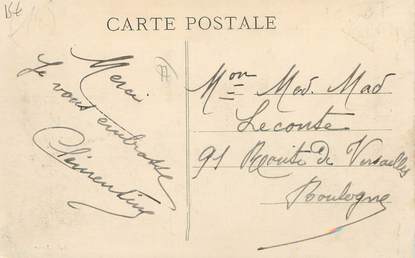 CARTE POSTALE
Merci
Je vous embrasse
Clémentine
Mon Mod. Mad
Leconte
91 Route de Versailles
Boulogne